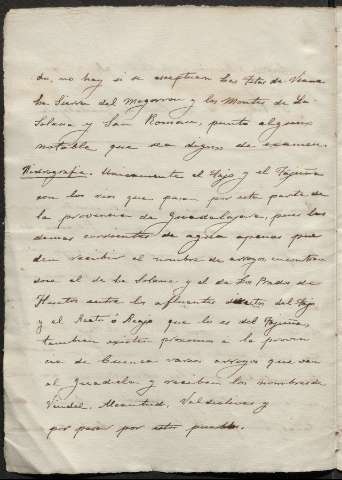 do, no hay si se exceptuan Las Tetas de Viana
la Sierra del Megorron y los Montes de La
Solana y San Roman, punto alguno
notable que sea digno de examen.
Hidrografia. Unicamente el Tajo y el Tajuña
son los rios que pasan por esta parte de
la provincia de Guadalajara, pues las
demas corrientes de agua apenas pue
den recibir el nombre de arroyos encontran
dose el de la Solana y el de Los Prados de
Huetos entre los afluentes del Tajo
y el ó que lo es del Tajuña,
tambien existen proximos a la provin
cia de Cuenca varios arroyos que van
al Guadiela y reciben los nombres de
Vindel, Alcantud, Valdeolivas y
por pasar por estos pueblos.